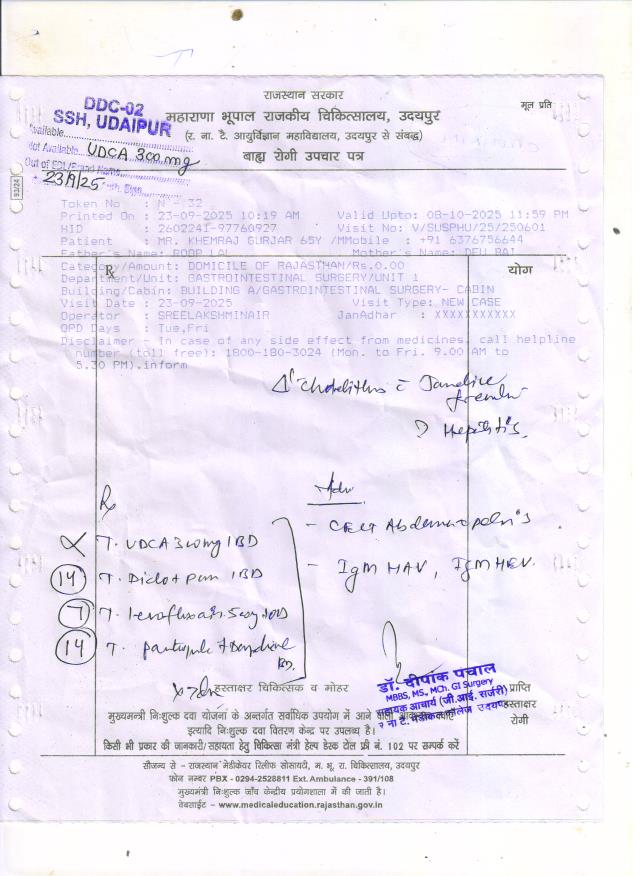 राजस्थान सरकार
मूल प्रति
DDC-02
SSH, UDAIPUR
महाराणा भूपाल राजकीय चिकित्सालय, उदयपुर
(र. ना. टै. आयुर्विज्ञान महाविद्यालय, उदयपुर से संबद्ध)
Available
Not Available UDCA 300mg
बाह्य रोगी उपचार पत्र
Out of EDL/Brand Name
23/9/25 Sign
93/24
Token No : N - 32
Printed On : 23-09-2025 10:19 AM Valid Upto: 08-10-2025 11:59 PM
HID : 2602241-97760927 Visit No: V/SUSPHU/25/250601
Patient : MR. KHEMRAJ GURJAR 65Y /MMobile : +91 6376756644
Father's Name: ROOP LAL Mother's Name: DEU BAI
Category/Amount: DOMICILE OF RAJASTHAN/Rs.0.00
℞ योग
Department/Unit: GASTROINTESTINAL SURGERY/UNIT 1
Building/Cabin: BUILDING A/GASTROINTESTINAL SURGERY- CABIN
Visit Date : 23-09-2025 Visit Type: NEW CASE
Operator : SREELAKSHMINAIR JanAdhar : XXXXXXXXXXX
OPD Days : Tue,Fri
Disclaimer - In case of any side effect from medicines, call helpline
number (toll free): 1800-180-3024 (Mon. to Fri. 9.00 AM to
5.30 PM).inform
Jaundice
? Hepatitis
Rx Adv
- CECT Abdomen
T. UDCA 300mg 1BD
- IgM HAV, IgM HEV.
14 T. 1BD
7 T.
14 T.
BD
हस्ताक्षर चिकित्सक व मोहर
डॉ. दीपांक पंचाल
MBBS, MS, MCh. GI Surgery
सहायक आचार्य (जी.आई. सर्जरी)
र ना टे. मेडीकल कॉलेज उदयपुर
प्राप्ति
हस्ताक्षर
रोगी
मुख्यमंत्री निःशुल्क दवा योजना के अन्तर्गत सर्वाधिक उपयोग में आने वाली
इत्यादि निःशुल्क दवा वितरण केन्द्र पर उपलब्ध है।
किसी भी प्रकार की जानकारी/सहायता हेतु चिकित्सा मंत्री हेल्प डेस्क टोल फ्री नं. 102 पर सम्पर्क करें
सौजन्य से - राजस्थान मेडीकेयर रिलीफ सोसायटी, म. भू. रा. चिकित्सालय, उदयपुर
फोन नम्बर PBX - 0294-2528811 Ext. Ambulance - 391/108
मुख्यमंत्री निःशुल्क जाँच केन्द्रीय प्रयोगशाला में की जाती है।
वेबसाईट - www.medicaleducation.rajasthan.gov.in